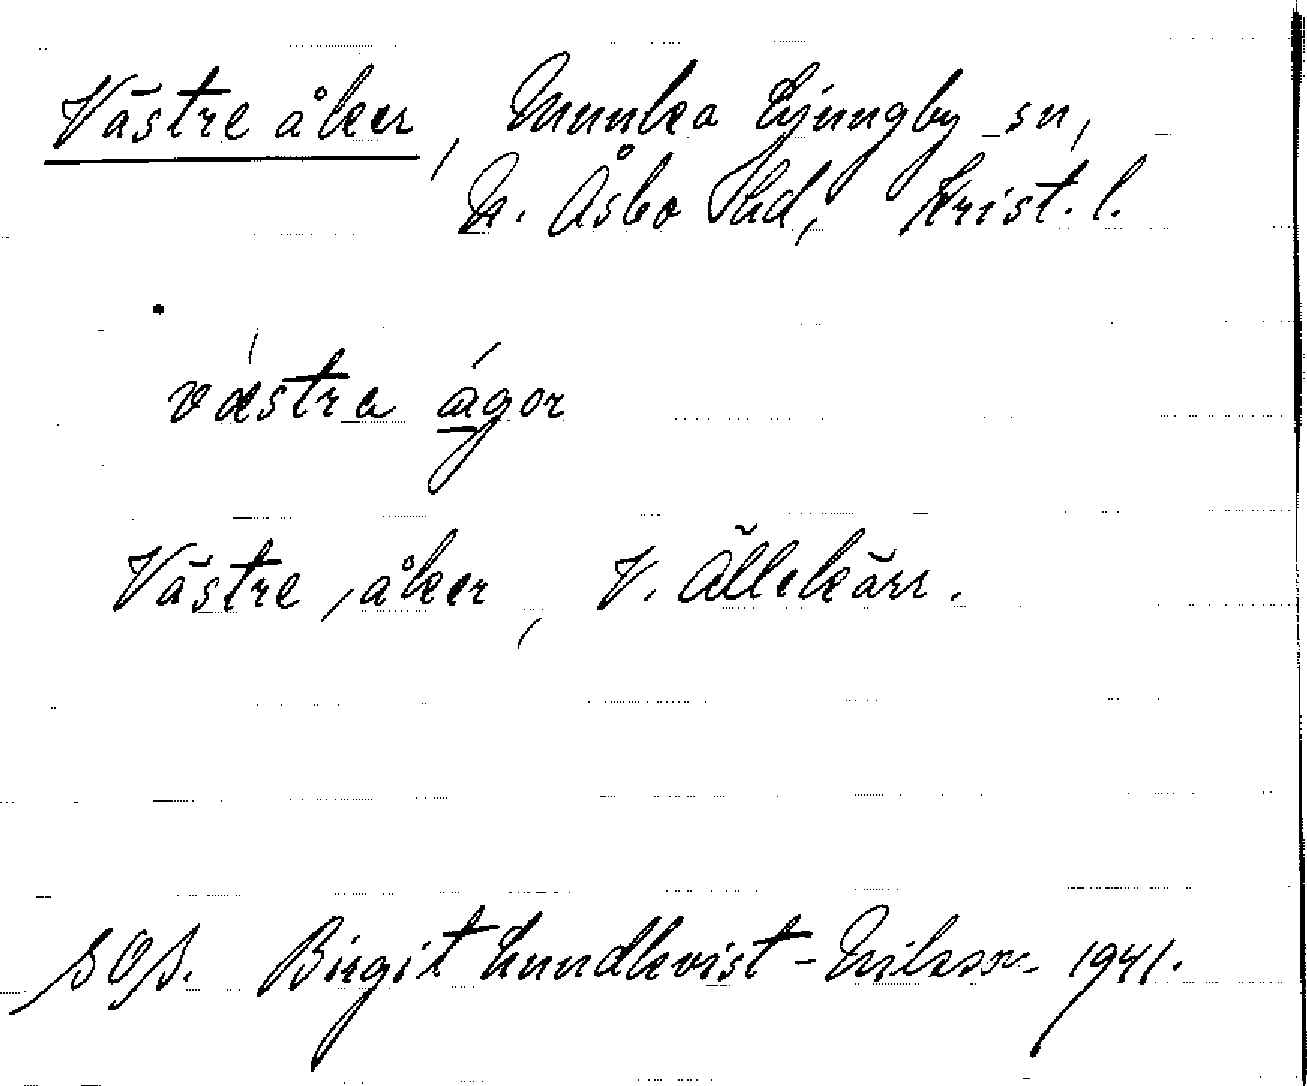 Västre åker, Munka Ljungby sn,
N. Åsbo Hd, Krist. l.
væstra ágor
Västre åker, V. Ällekärr.
SOS. Birgit Lundkvist-Nilsson 1941.